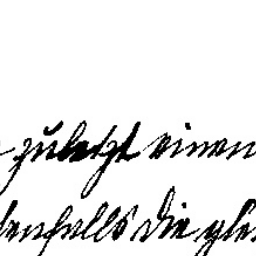 zuletzt einen
enfalls die gle